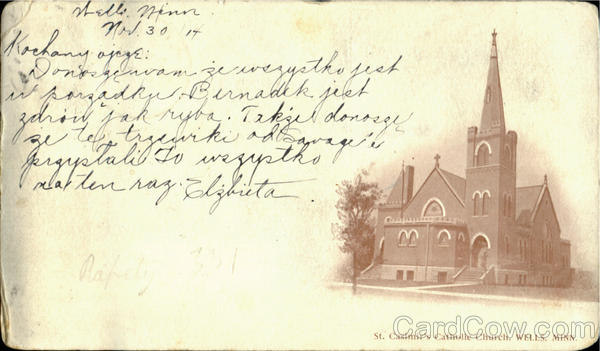 Wells, Minn.
Nov. 30 14
Kochany ojcze:
Donoszę wam że wszystko jest
w porządku. Bernadek jest
zdrów jak ryba. Także donoszę
że te trzewiki od Savage'e
przystali. To wszystko
na ten raz. Elżbieta
St. Casimir's Catholic Church, WELLS, MINN.
CardCow.com